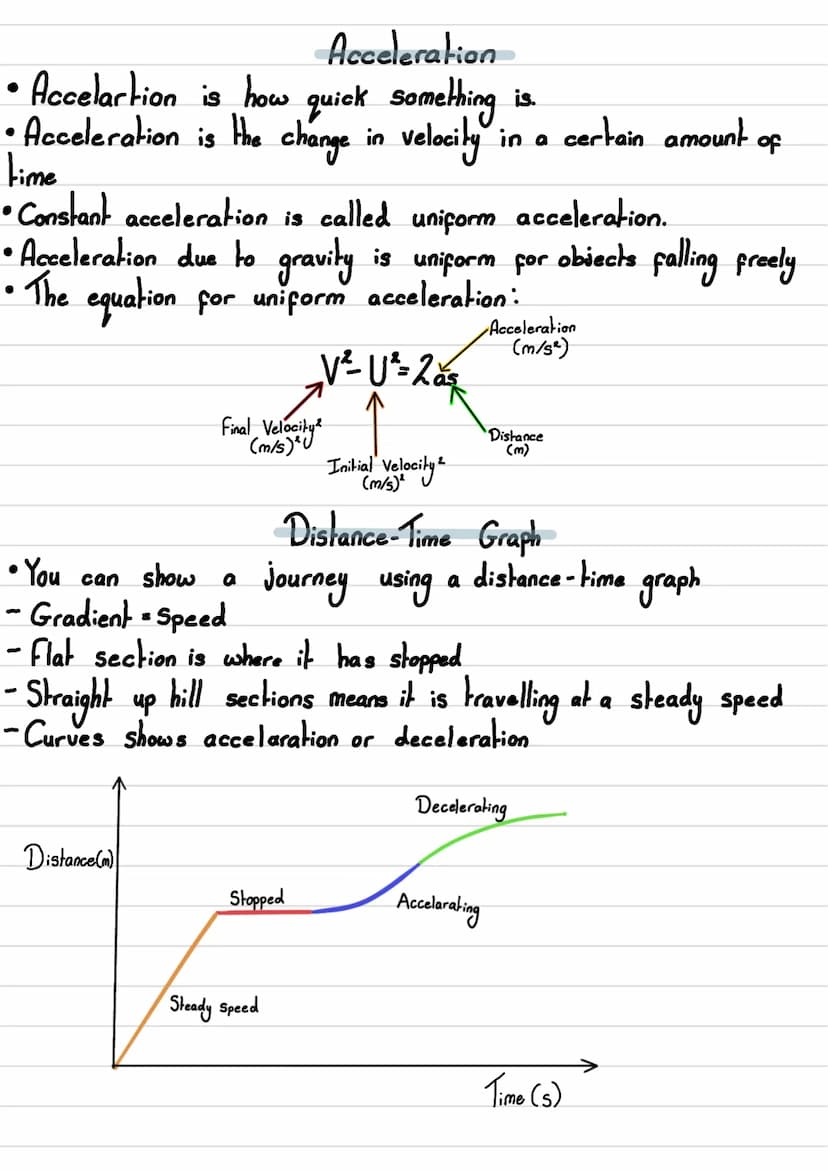 Acceleration
• Accelartion is how quick something is.
• Acceleration is the change in velocity in a certain amount of
time
• Constant acceleration is called uniform acceleration.
• Acceleration due to gravity is uniform for objects falling freely
• The equation for uniform acceleration:
Acceleration
(m/s²)
V² - U² = 2as
Final Velocity²
(m/s)²
Distance
(m)
Initial Velocity²
(m/s)²
Distance-Time Graph
• You can show a journey using a distance-time graph
- Gradient = Speed
- Flat section is where it has stopped
- Straight up hill sections means it is travelling at a steady speed
- Curves shows accelaration or deceleration
Decelerating
Distance(m)
Stopped
Accelarating
Steady Speed
Time (s)